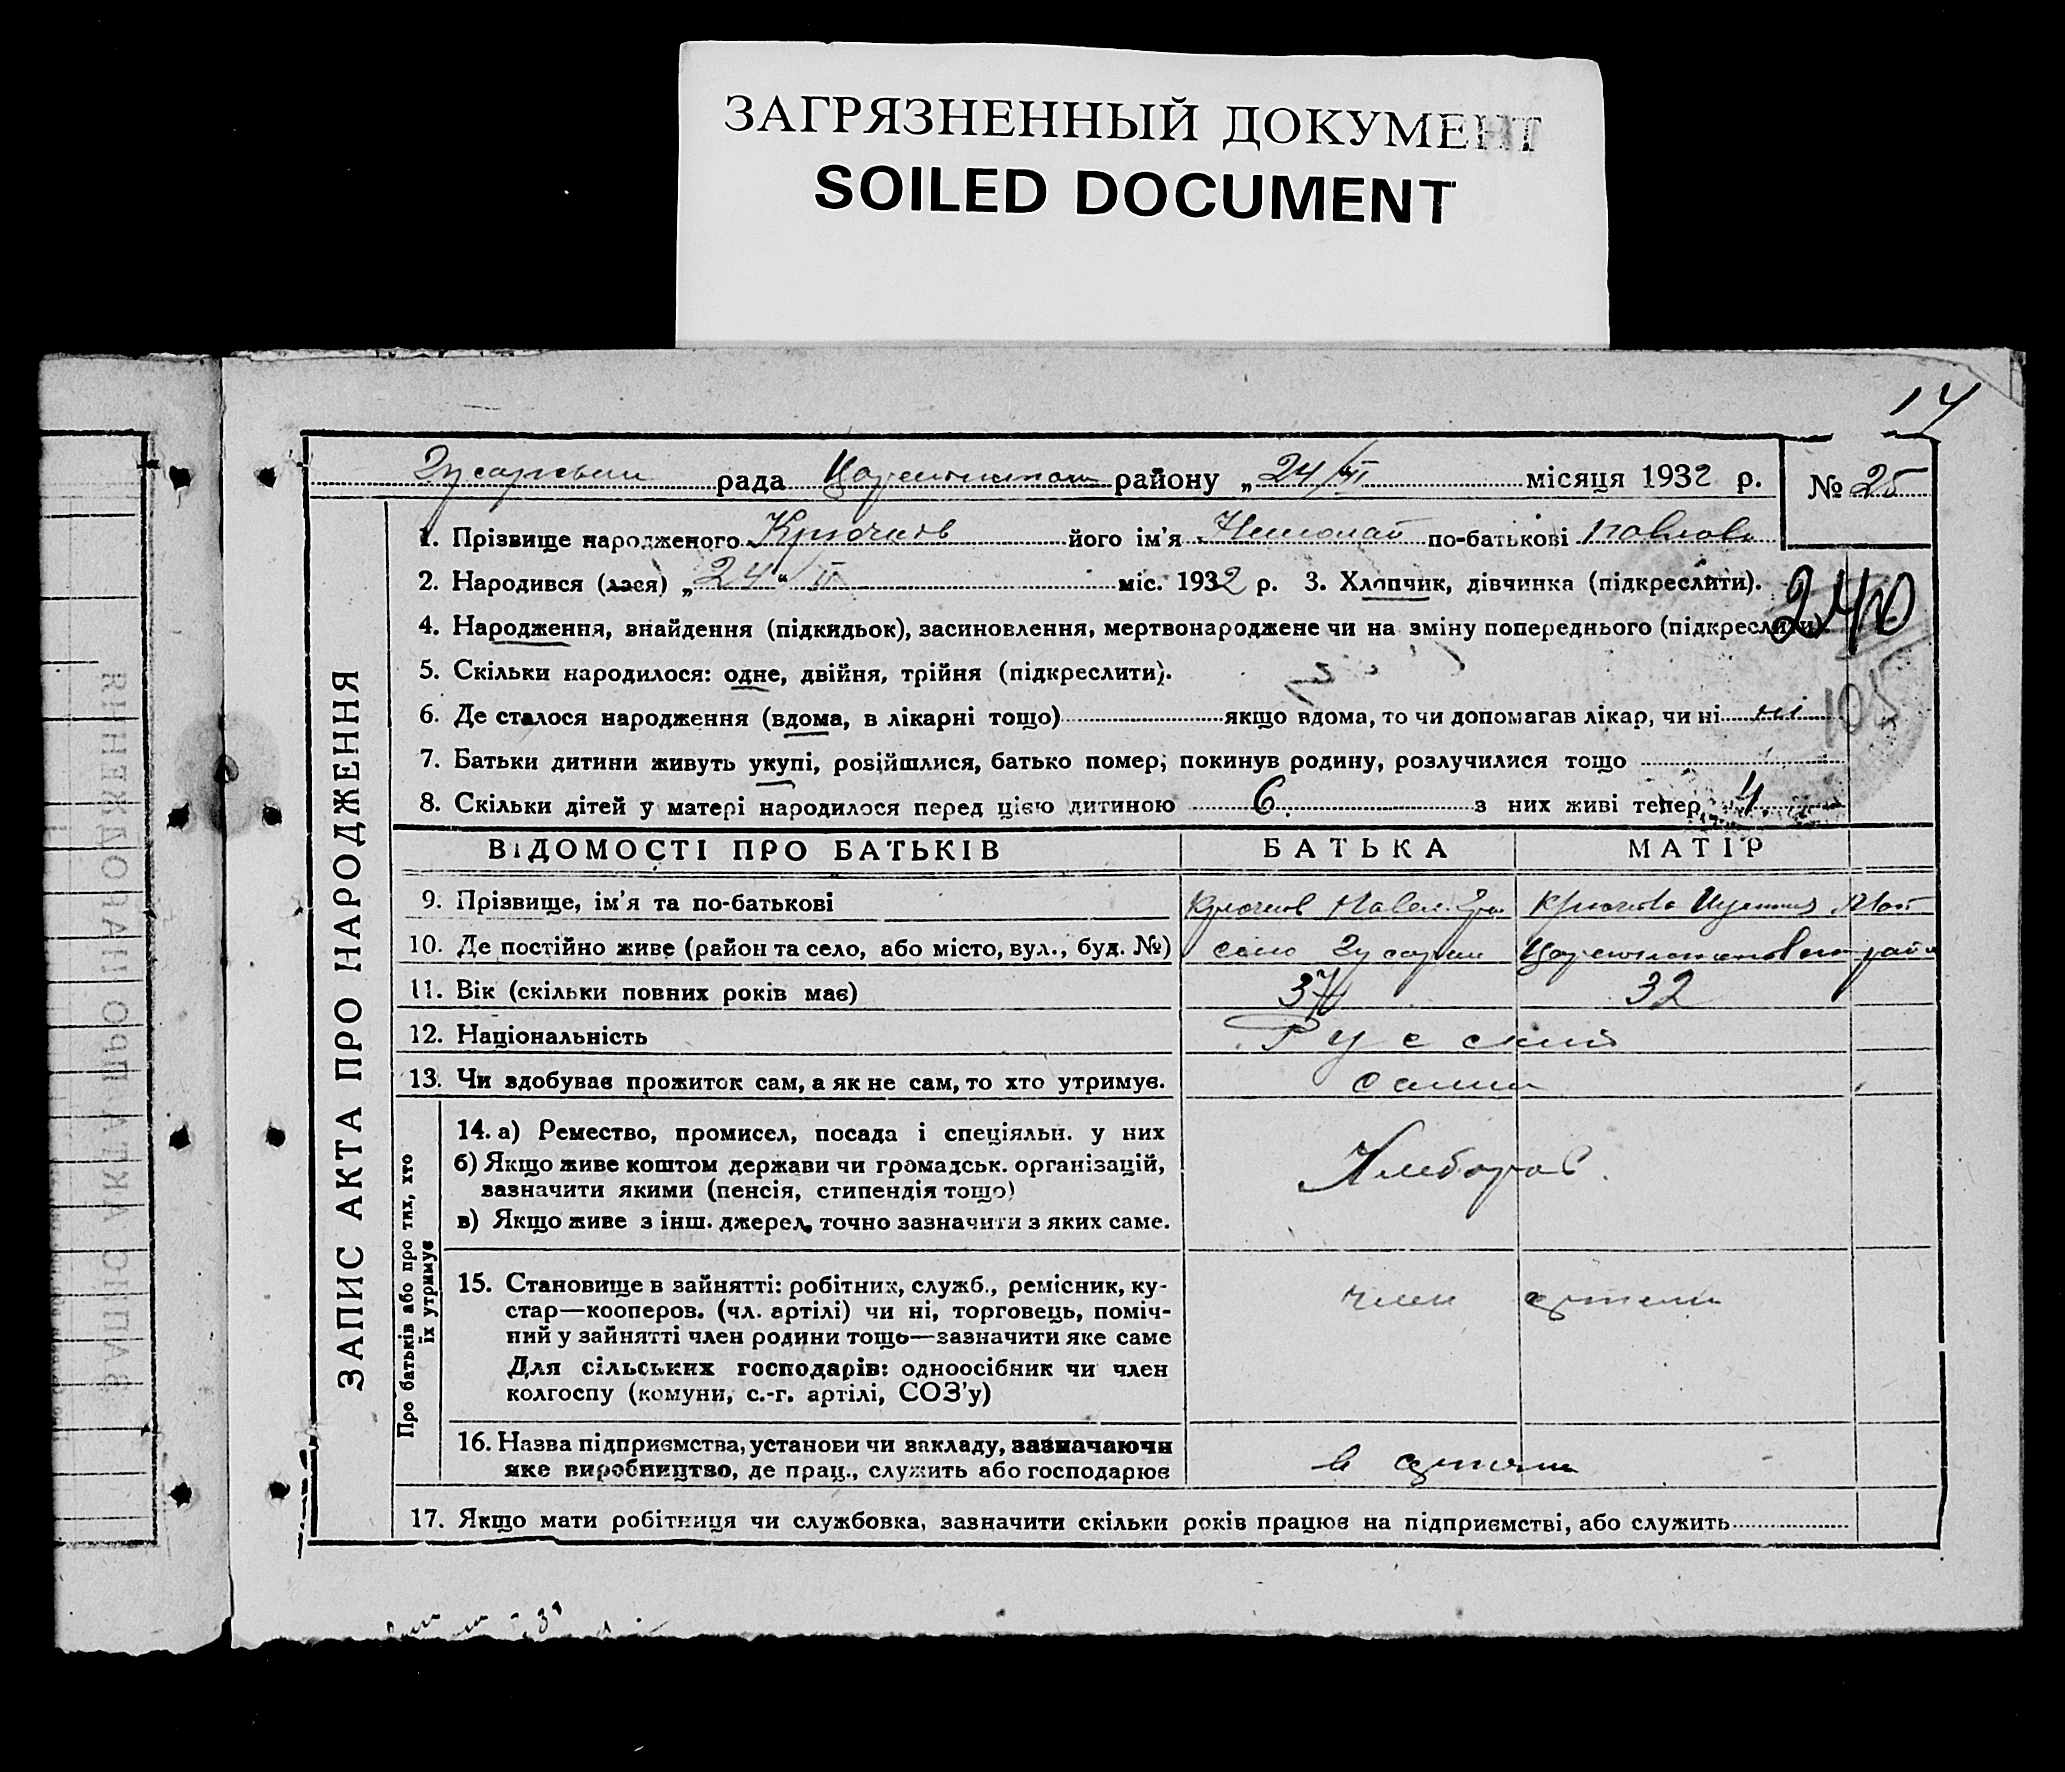 ЗАГРЯЗНЕННЫЙ ДОКУМЕНТ
SOILED DOCUMENT
14
рада району „24/III місяця 1932 р. № 25
ЗАПИС АКТА ПРО НАРОДЖЕННЯ
1. Прізвище народженого Крючков його ім'я Николай по-батькові Павлов
2. Народився (лася) „24“ II міс. 1932 р. 3. Хлопчик, дівчинка (підкреслити).
240
4. Народження, знайдення (підкидьок), засиновлення, мертвонароджене чи на зміну попереднього (підкреслити).
5. Скільки народилося: одне, двійня, трійня (підкреслити).
6. Де сталося народження (вдома, в лікарні тощо) якщо вдома, то чи допомагав лікар, чи ні ні
105
7. Батьки дитини живуть укупі, розійшлися, батько помер, покинув родину, розлучилися тощо
8. Скільки дітей у матері народилося перед цією дитиною 6 з них живі тепер 4
ВІДОМОСТІ ПРО БАТЬКІВ БАТЬКА МАТІР
9. Прізвище, ім'я та по-батькові Крючков Павел Крючкова
10. Де постійно живе (район та село, або місто, вул., буд. №) село
11. Вік (скільки повних років має) 37 32
12. Національність Русский
13. Чи здобуває прожиток сам, а як не сам, то хто утримує. сами
Про батьків або про тих, хто їх утримує
14. а) Ремество, промисел, посада і спеціяльн. у них
б) Якщо живе коштом держави чи громадськ. організацій,
зазначити якими (пенсія, стипендія тощо)
Хлебороб
в) Якщо живе з інш. джерел, точно зазначити з яких саме.
15. Становище в зайнятті: робітник, служб., ремісник, ку-
стар—кооперов. (чл. артілі) чи ні, торговець, поміч- член артели
ний у зайнятті член родини тощо—зазначити яке саме
Для сільських господарів: одноосібник чи член
колгоспу (комуни, с.-г. артілі, СОЗ'у)
16. Назва підприємства, установи чи закладу, зазначаючи
яке виробництво, де прац., служить або господарює в артели
17. Якщо мати робітниця чи службовка, зазначити скільки років працює на підприємстві, або служить